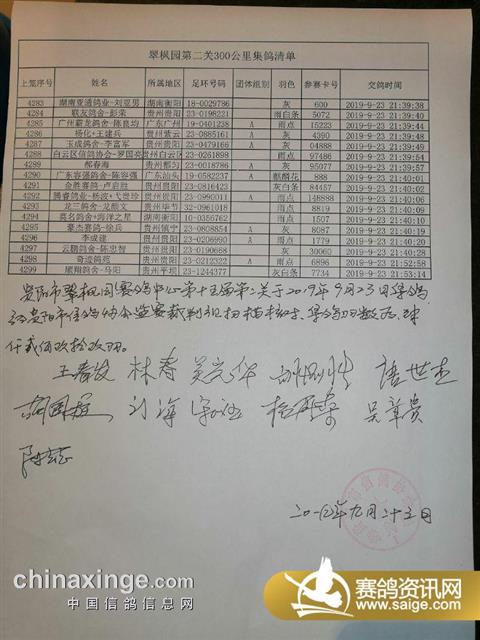 翠枫园第二关300公里集鸽清单
上笼序号 姓名 所属地区 足环号码 团体组别 羽色 参赛卡号 交鸽时间
4283 湖南亚通鸽业-刘亚男 湖南衡阳 18-0029786 灰 600 2019-9-23 21:39:38
4284 联友鸽舍-彭荣 贵州贵阳 23-0198221 雨白条 5072 2019-9-23 21:39:40
4285 广州霸龙鸽舍-陈良均 广东广州 19-0401238 A 雨点 15223 2019-9-23 21:39:44
4286 杨化+王建兵 贵州紫云 23-0885161 A 灰 4390 2019-9-23 21:39:50
4287 玉成鸽舍-李富军 贵州贵阳 23-0479166 A 灰 4465 2019-9-23 21:39:54
4288 白云区信鸽协会-罗国亮 贵州白云区 23-0261898 雨点 97486 2019-9-23 21:39:54
4289 郝春海 贵州都匀 23-0018786 A 灰 95077 2019-9-23 21:39:57
4290 广东容强鸽舍-陈容强 广东汕头 19-0582237 A 麒麟花 888 2019-9-23 21:40:01
4291 金胜赛鸽-卢启胜 贵州贵阳 23-0816423 灰白条 84457 2019-9-23 21:40:02
4292 腾睿鸽业-杨波+弋俊珍 贵州贵阳 23-0990011 A 雨点 148888 2019-9-23 21:40:06
4293 龙三鸽舍-龙麒文 贵州毕节 32-0081160 雨点 8819 2019-9-23 21:40:09
4294 莫名鸽舍+海洋之星 湖南衡阳 10-0356762 雨点 1507 2019-9-23 21:40:10
4295 豪杰赛鸽-徐兵 贵州镇宁 23-0808854 A 灰 8087 2019-9-23 21:40:19
4296 李成建 贵州贵阳 23-0206990 A 雨点 1779 2019-9-23 21:40:20
4297 云鹏鸽舍-陈忠智 贵州贵阳 23-0190668 灰 6030 2019-9-23 21:40:26
4298 奇迹鸽苑 贵州贵阳 23-0212322 A 雨点 6896 2019-9-23 21:52:58
4299 顺翔鸽舍-马阳 贵州平坝 23-1244377 灰白条 7734 2019-9-23 21:53:14
贵阳市翠枫园赛鸽中心第十五届第二关于2019年9月23日集鸽
经贵阳市信鸽协会监赛裁判组扫描核对,集鸽羽数为:肆
仟贰佰玖拾玖羽。
王春发 林春
胡国 吴章贵
九月二十三日
chinaxinge.com
中国信鸽信息网
赛鸽资讯网
www.saige.com